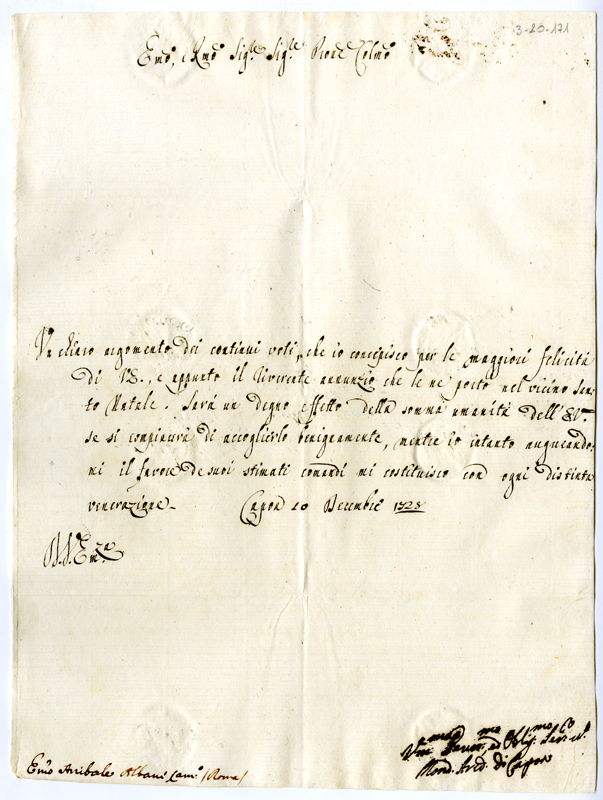 3-20-171
Emo, e Rmo Sigre Sigre Prone Colmo
Un chiaro argomento dei continui voti, che io concepisco per le maggiori felicità
di V.E., è appunto il riverente annunzio che le ne porto nel vicino San-
to Natale. Sarà un degno effetto della somma umanità dell' E.V.
se si compiacerà di accoglierlo benignamente, mentre io intanto augurando-
mi il favore de suoi stimati comandi mi costituisco con ogni distinta
venerazione. Capoa 10 Decembre 1728
Emo Annibale Albani Cam.o (Roma)
Vmo Obligmo
Mond. Arciv. di Capoa